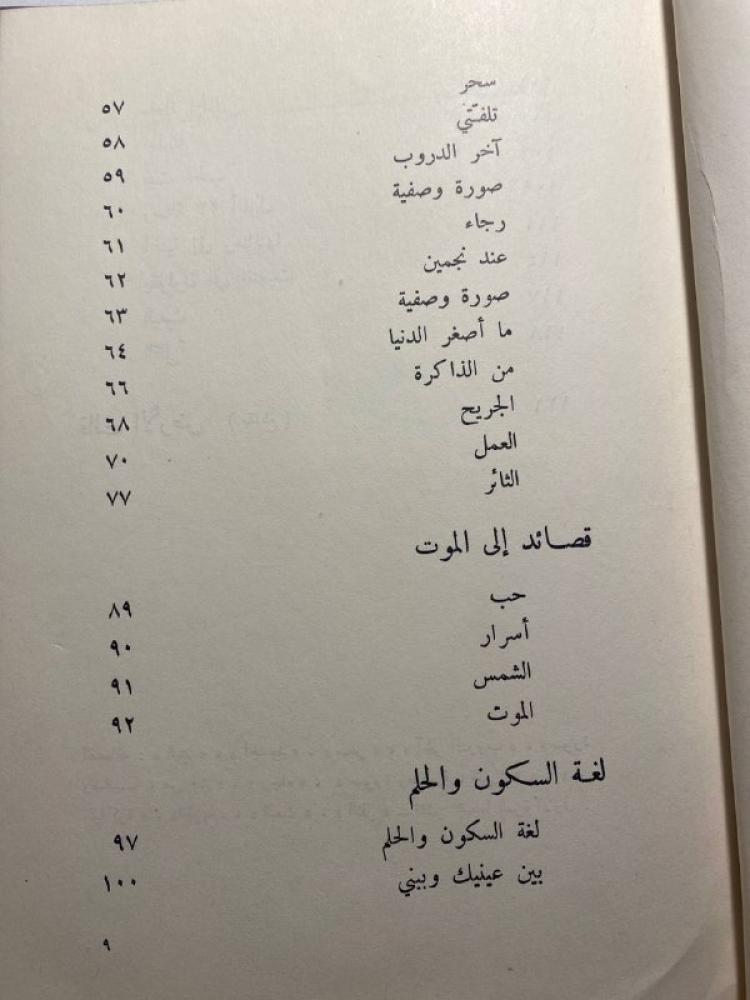 سحر ٥٧
تلفتني ٥٨
آخر الدروب ٥٩
صورة وصفية ٦٠
رجاء ٦١
عند نجمين ٦٢
صورة وصفية ٦٣
ما أصغر الدنيا ٦٤
من الذاكرة ٦٦
الجريح ٦٨
العمل ٧٠
الثائر ٧٧
قصائد إلى الموت
حب ٨٩
أسرار ٩٠
الشمس ٩١
الموت ٩٢
لغة السكون والحلم
لغة السكون والحلم ٩٧
بين عينيك وبيني ١٠٠
٩